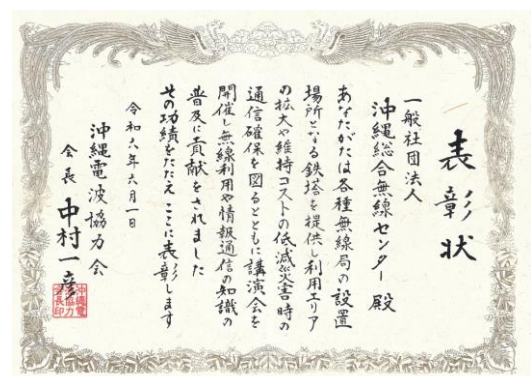 表彰状
一般社団法人
沖縄総合無線センター 殿
あなたがたは各種無線局の設置
場所となる鉄塔を提供し利用エリア
の拡大や維持コストの低減災害時の
通信確保を図るとともに講演会を
開催し無線利用や情報通信の知識の
普及に貢献をされました
その功績をたたえここに表彰します
令和六年六月一日
沖縄電波協力会
会長 中村一彦